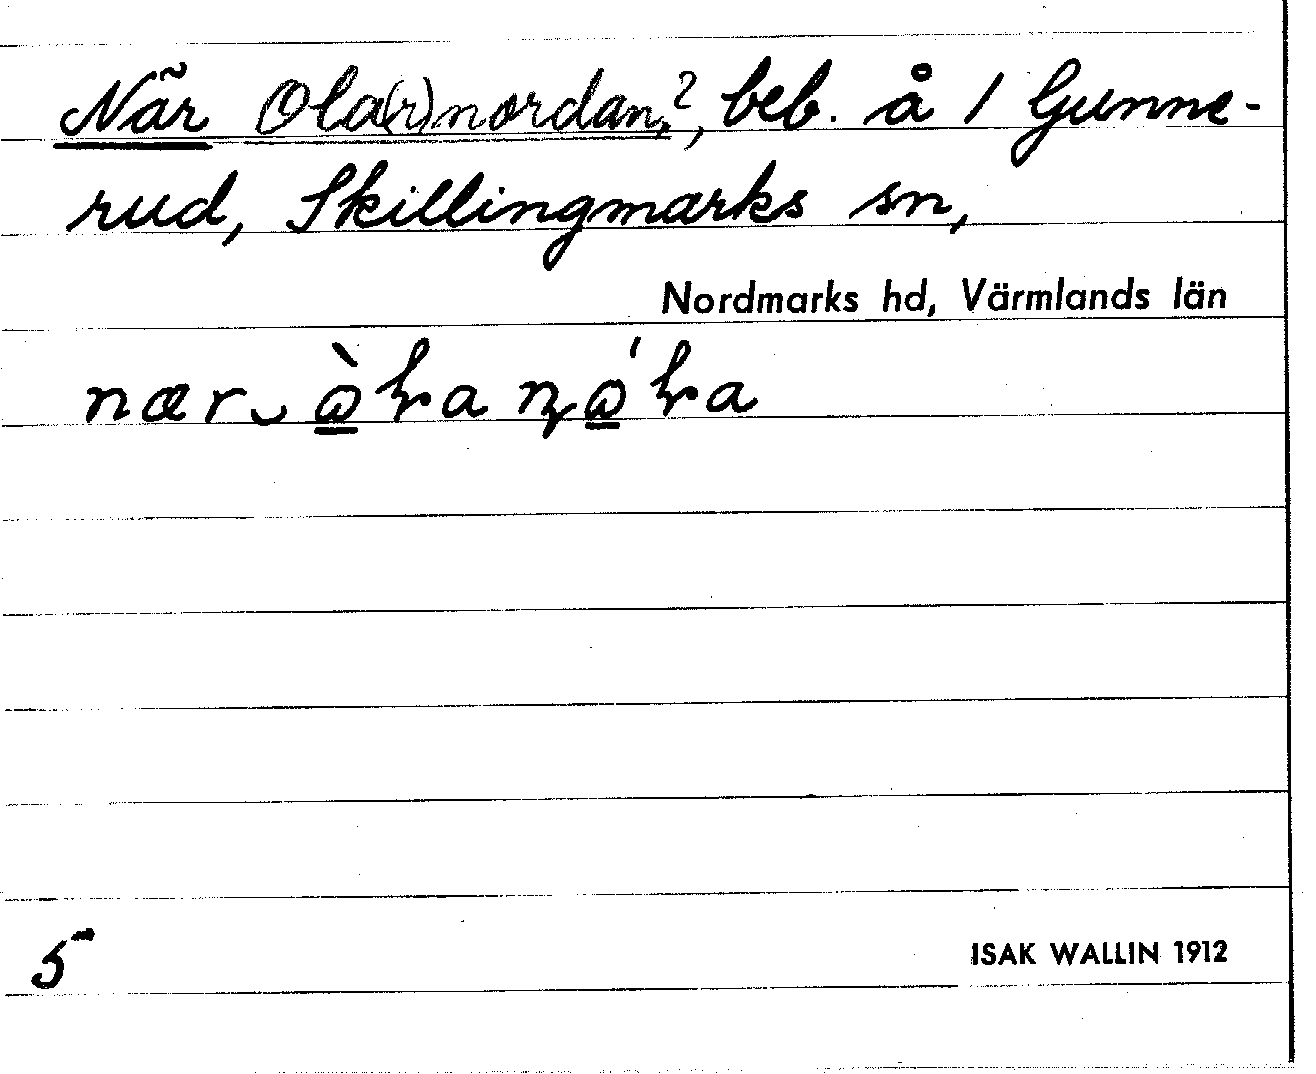 När Ola(r)nordan,?, beb. å 1 Gunne-
rud, Skillingmarks sn,
Nordmarks hd, Värmlands län
5
ISAK WALLIN 1912